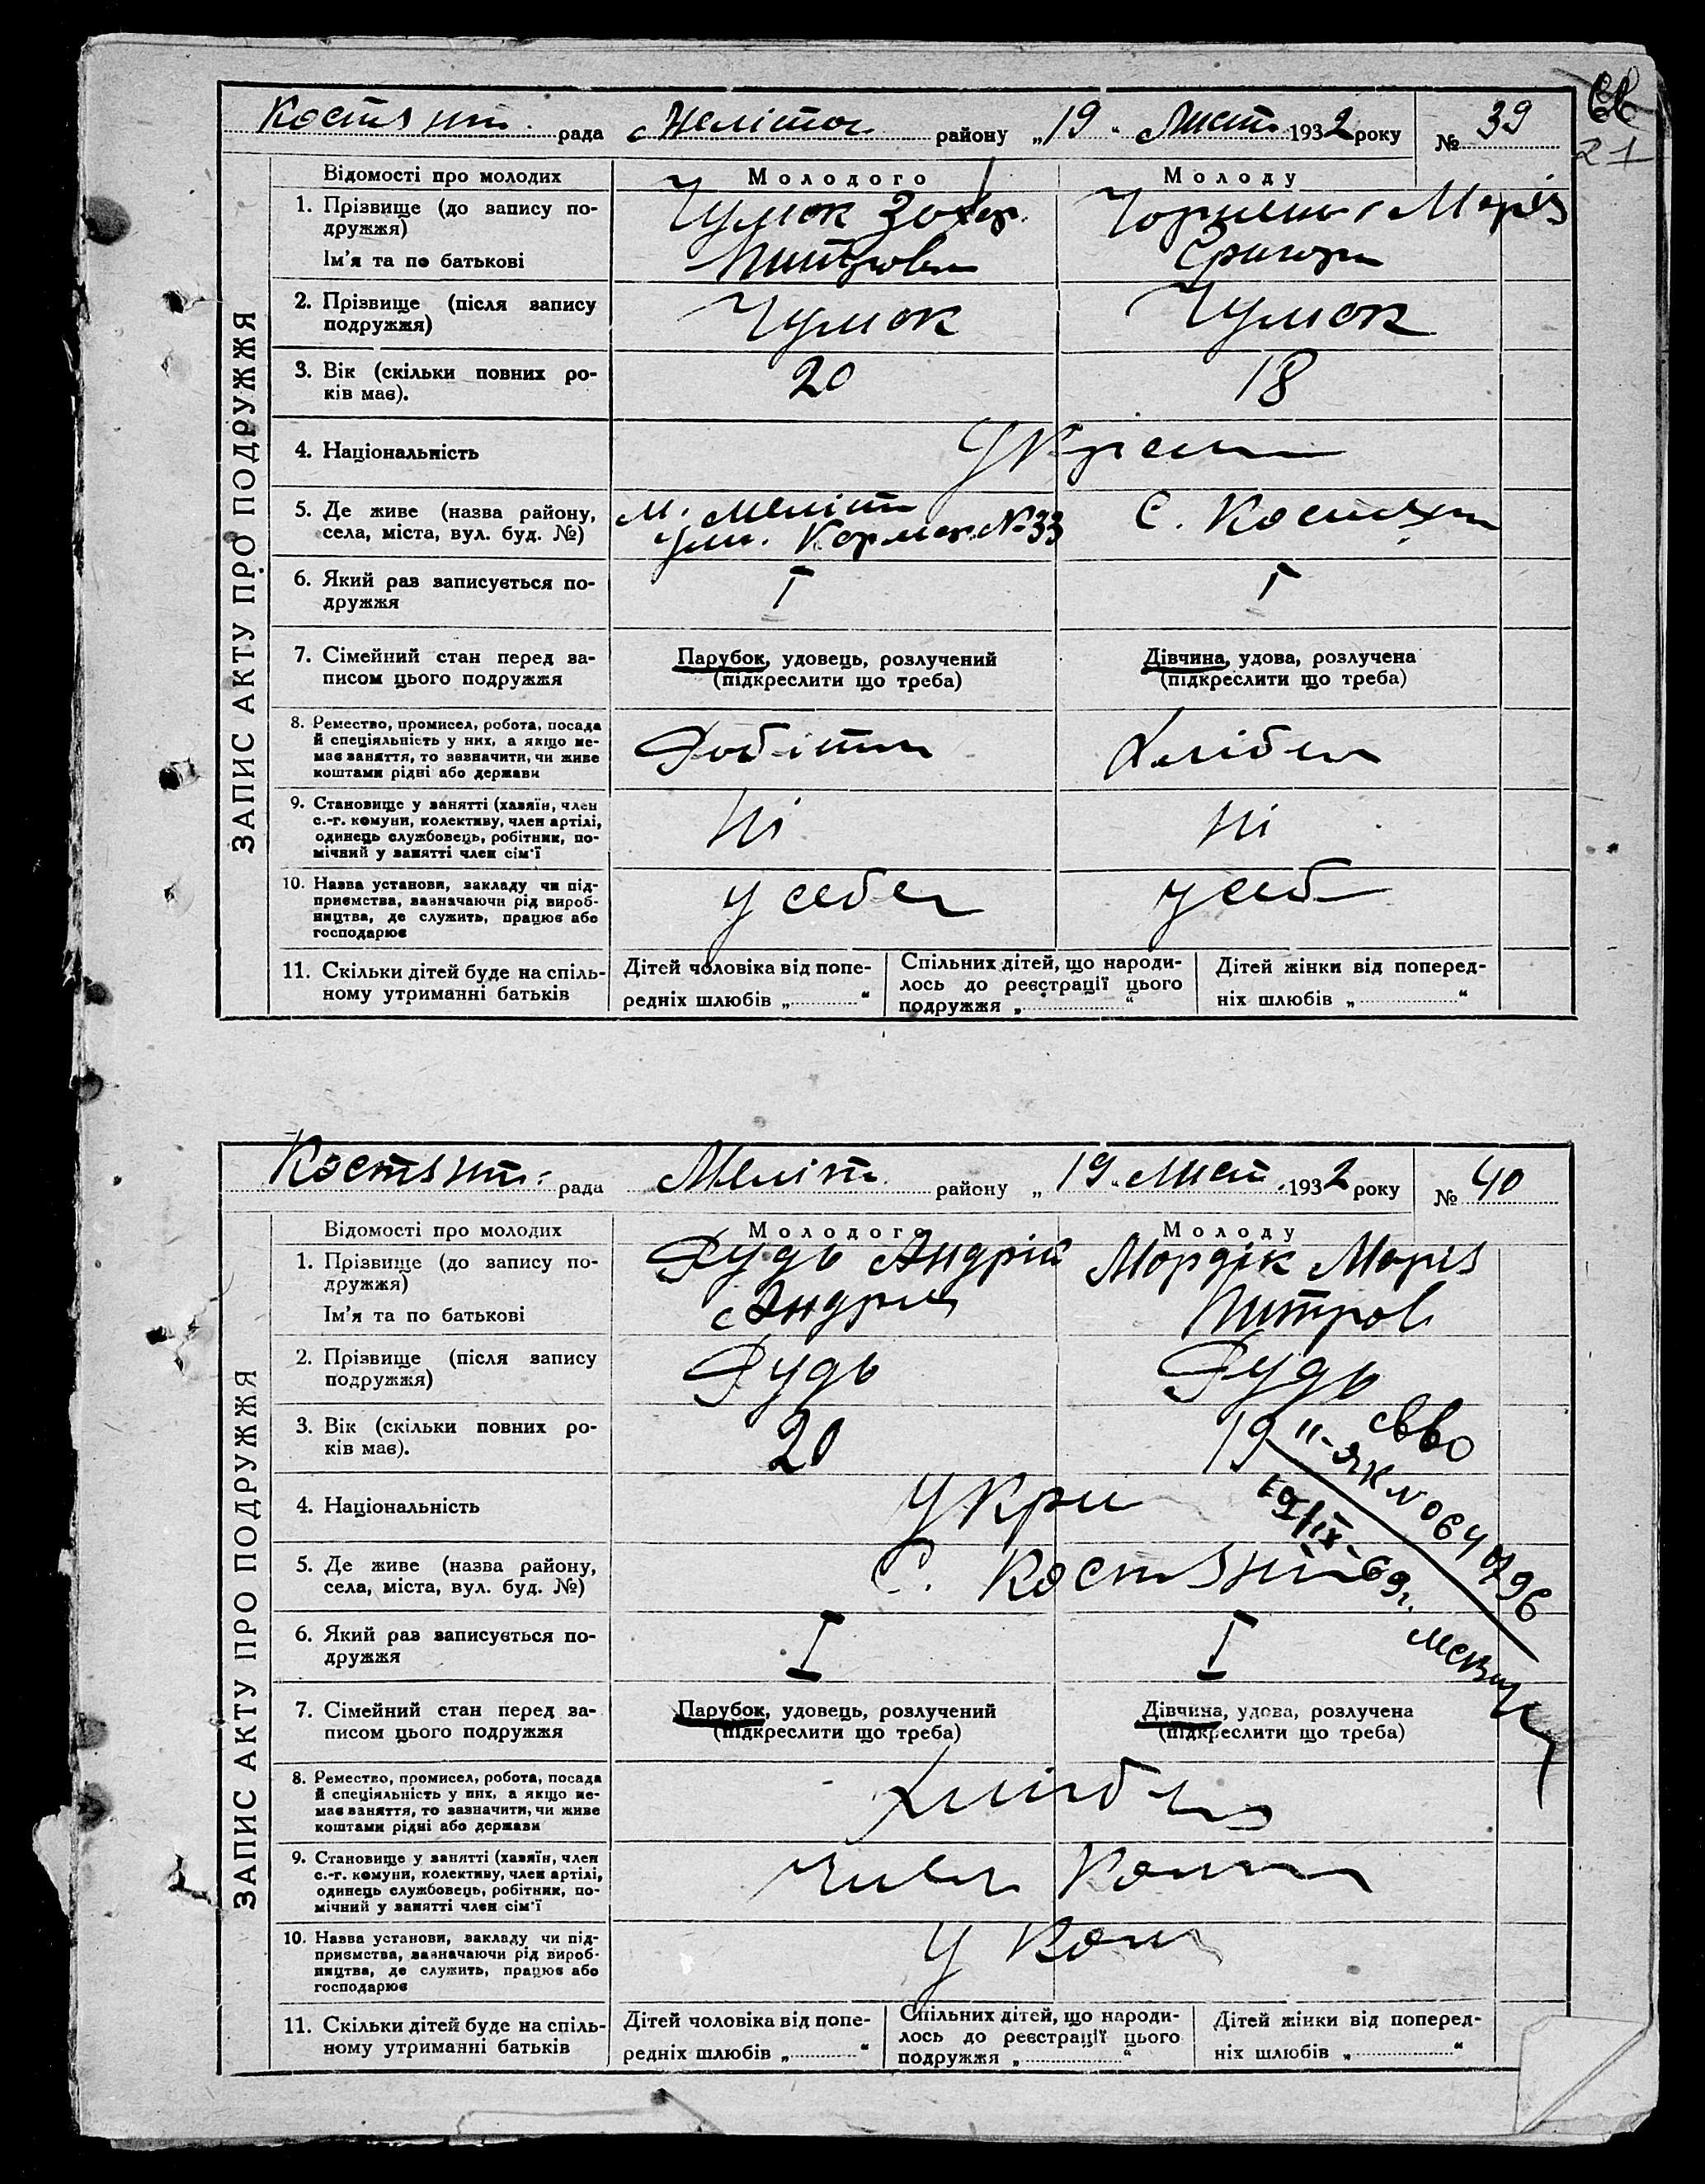 21
Костянт. рада Меліто районy „19“ Лист. 1932 року № 39
ЗАПИС АКТУ ПРО ПОДРУЖЖЯ
Відомості про молодих Молодого Молоду
1. Прізвище (до запису по-
дружжя)
Ім'я та по батькові
Чумак Захар
Митров
Марія
Григор
2. Прізвище (після запису
подружжя)
Чумак Чумак
3. Вік (скільки повних ро-
ків має).
20 18
4. Національність
Україн
5. Де живе (назва району,
села, міста, вул. буд. №)
м. Меліт
ул. Карла №33
С. Костянт
6. Який раз записується по-
дружжя
I I
7. Сімейний стан перед за-
писом цього подружжя
Парубок, удовець, розлучений
(підкреслити що треба)
Дівчина, удова, розлучена
(підкреслити що треба)
8. Ремество, промисел, робота, посада
й спеціяльність у них, а якщо не-
має заняття, то зазначити, чи живе
коштами рідні або держави
Робітн Хлібом
9. Становище у занятті (хазяїн, член
с.-г. комуни, колективу, член артілі,
одинець службовець, робітник, по-
мічний у занятті член сім'ї
Ні Ні
10. Назва установи, закладу чи під-
приємства, зазначаючи рід вироб-
ництва, де служить, працює або
господарює
у себе у себ
11. Скільки дітей буде на спіль-
ному утриманні батьків
Дітей чоловіка від попе-
редніх шлюбів „ “
Спільних дітей, що народи-
лось до реєстрації цього
подружжя „ “
Дітей жінки від поперед-
ніх шлюбів „ “
Костянт. рада Меліт. району „19 Лист. 1932 року № 40
ЗАПИС АКТУ ПРО ПОДРУЖЖЯ
Відомості про молодих Молодого Молоду
1. Прізвище (до запису по-
дружжя)
Ім'я та по батькові
Рудь Андрій
Андри
Мордік Марія
Митров
2. Прізвище (після запису
подружжя)
Рудь Рудь
3. Вік (скільки повних ро-
ків має).
20 19
свво
II-ЯК №064796
19/IX-69г.
4. Національність
Укра
5. Де живе (назва району,
села, міста, вул. буд. №)
С. Костянт
6. Який раз записується по-
дружжя
I I
7. Сімейний стан перед за-
писом цього подружжя
Парубок, удовець, розлучений
(підкреслити що треба)
Дівчина, удова, розлучена
(підкреслити що треба)
8. Ремество, промисел, робота, посада
й спеціяльність у них, а якщо не-
має заняття, то зазначити, чи живе
коштами рідні або держави
9. Становище у занятті (хазяїн, член
с.-г. комуни, колективу, член артілі,
одинець службовець, робітник, по-
мічний у занятті член сім'ї
Член Ком
10. Назва установи, закладу чи під-
приємства, зазначаючи рід вироб-
ництва, де служить, працює або
господарює
у Ком
11. Скільки дітей буде на спіль-
ному утриманні батьків
Дітей чоловіка від попе-
редніх шлюбів „ “
Спільних дітей, що народи-
лось до реєстрації цього
подружжя „ “
Дітей жінки від поперед-
ніх шлюбів „ “